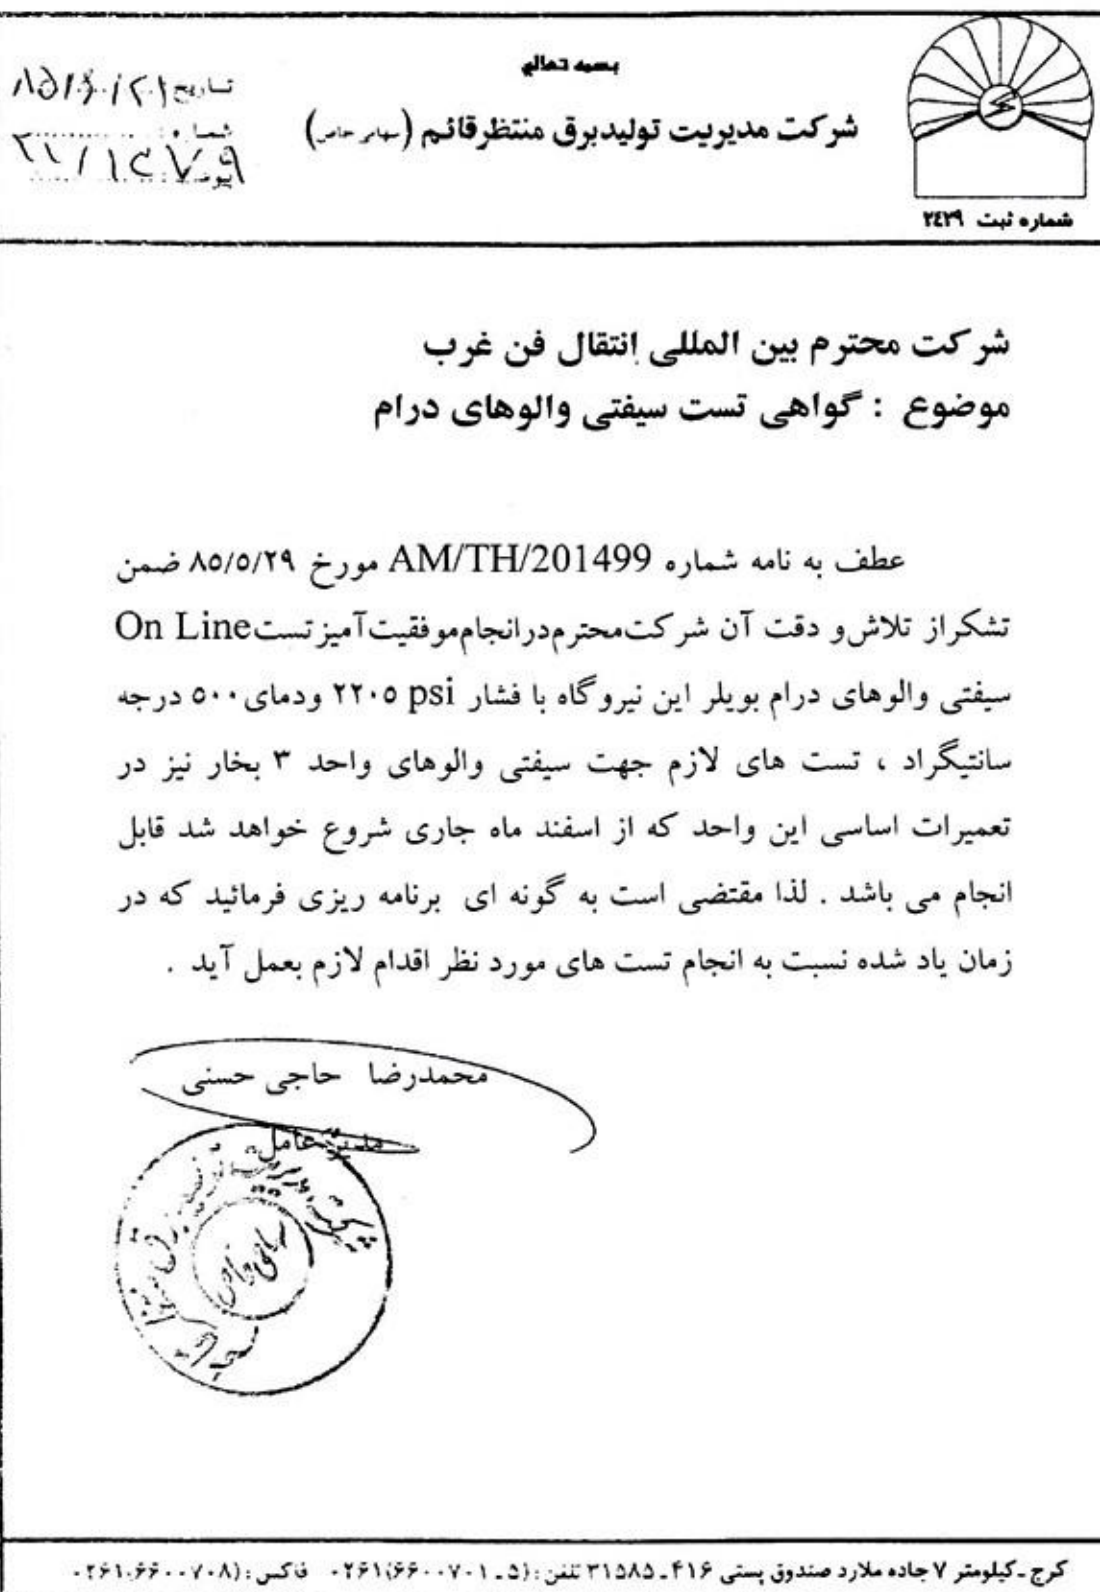 بسمه تعالی
شرکت مدیریت تولیدبرق منتظرقائم (سهامی خاص)
شماره ثبت ۲٤۲۹
تاریخ
شماره
پیوست
شرکت محترم بین المللی انتقال فن غرب
موضوع : گواهی تست سیفتی والوهای درام
عطف به نامه شماره AM/TH/201499 مورخ ۸۵/۵/۲۹ ضمن
تشکراز تلاش و دقت آن شرکت محترم در انجام موفقیت آمیز تست On Line
سیفتی والوهای درام بویلر این نیروگاه با فشار ۲۲۰۵ psi ودمای ۵۰۰ درجه
سانتیگراد ، تست های لازم جهت سیفتی والوهای واحد ۳ بخار نیز در
تعمیرات اساسی این واحد که از اسفند ماه جاری شروع خواهد شد قابل
انجام می باشد . لذا مقتضی است به گونه ای برنامه ریزی فرمائید که در
زمان یاد شده نسبت به انجام تست های مورد نظر اقدام لازم بعمل آید .
محمدرضا حاجی حسنی
مدیرعامل
شرکت مدیریت تولید برق منتظر قائم
سهامی خاص
کرج ـ کیلومتر ۷ جاده ملارد صندوق پستی ۴۱۶ ـ ۳۱۵۸۵ تلفن : (۵ ـ ۶۶۰۰۷۰۱) ۰۲۶۱ فاکس : (۶۶۰۰۷۰۸) ۰۲۶۱